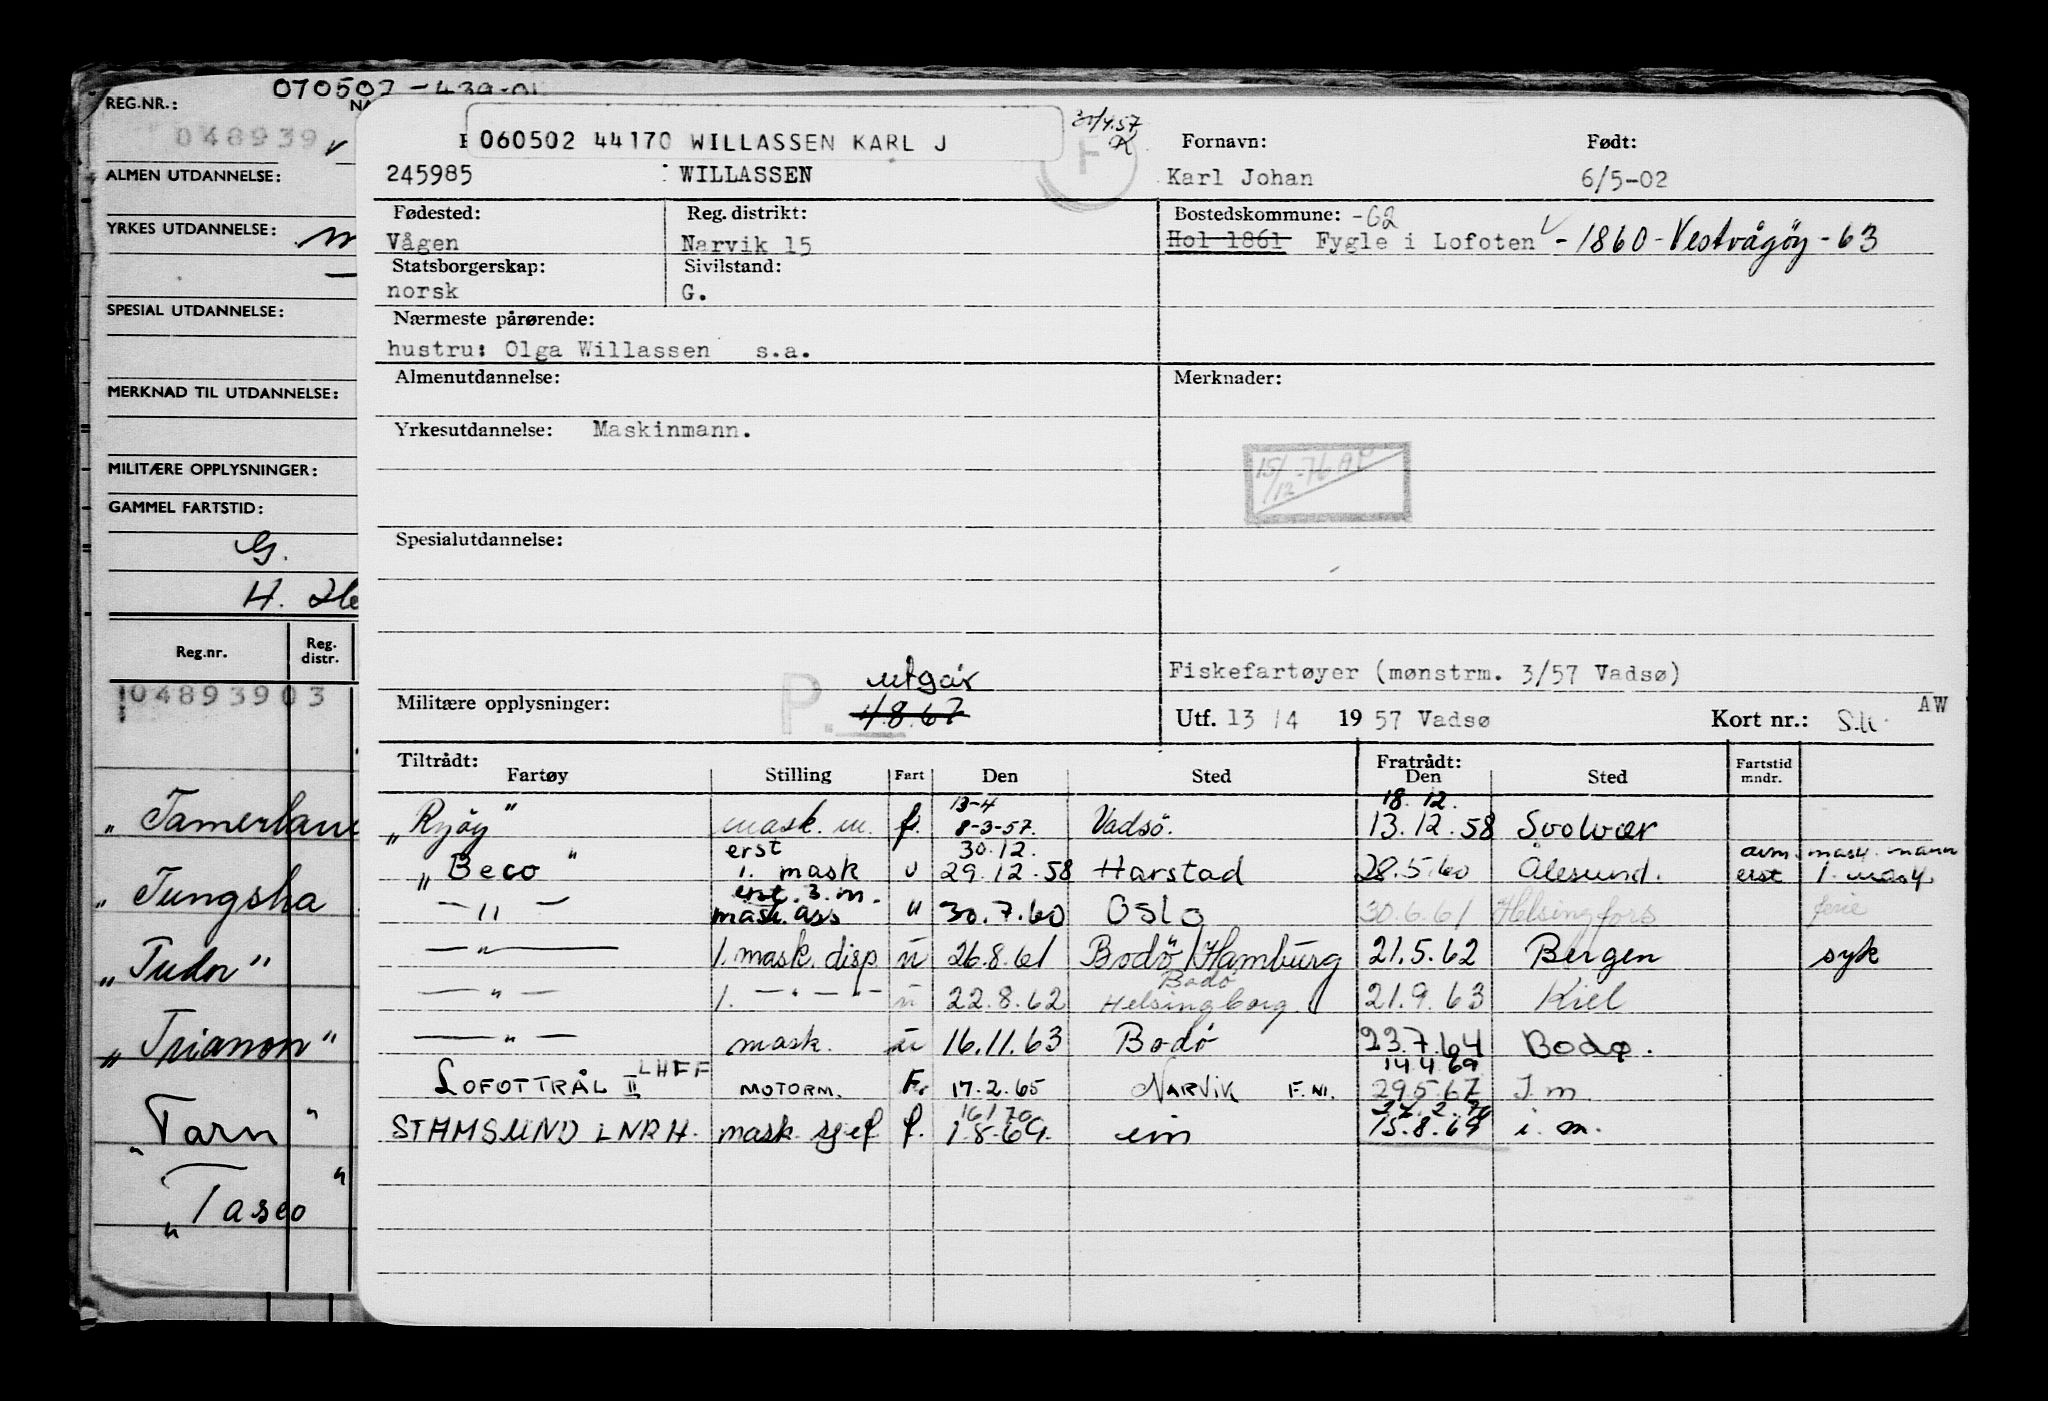 070502
REG.NR.:
048939
ALMEN UTDANNELSE:
YRKES UTDANNELSE:
SPESIAL UTDANNELSE:
MERKNAD TIL UTDANNELSE:
MILITÆRE OPPLYSNINGER:
GAMMEL FARTSTID:
G.
H.
Reg.nr. Reg. distr.
04893903
„Tamerlane
„Tungsha
„Tudor"
„Trianon"
„Tarn"
„Tasco"
060502 44170 WILLASSEN KARL J
Fornavn: Født:
245985 WILLASSEN Karl Johan 6/5-02
F
Fødested: Reg. distrikt: Bostedskommune: -62
Vågen Narvik 15 Hol 1861 Fygle i Lofoten - 1860 - Vestvågöy - 63
Statsborgerskap: Sivilstand:
norsk G.
Nærmeste pårørende:
hustru: Olga Willassen s.a.
Almenutdannelse: Merknader:
Yrkesutdannelse: Maskinmann.
15/12-76
Spesialutdannelse:
utgår
Fiskefartøyer (mønstrm. 3/57 Vadsø)
Militære opplysninger: P. 4.8.67
Utf. 13/4 1957 Vadsø Kort nr.: AW
Tiltrådt: Fratrådt:
Fartøy Stilling Fart Den Sted Den Sted Fartstid mndr.
13-4 18.12.
„Ryöy" mask. m. f. 8-3-57. Vadsö. 13.12.58 Svolvær
erst 30.12. avm. mask. mann
„Beco" 1. mask u 29.12.58 Harstad 28.5.60 Ålesund. erst 1. mask.
erst. 3. m.
— " — mask. ass " 30.7.60 Oslo 30.6.61 Helsingfors ferie
— " — 1. mask. disp u 26.8.61 Bodö/Hamburg 21.5.62 Bergen syk
Bodö
— " — 1. — " — " — u 22.8.62 Helsingborg. 21.9.63 Kiel
— " — mask. u 16.11.63 Bodö 23.7.64 Bodø.
LHFF 14.4.69
LOFOTTRÅL II MOTORM. F. 17.2.65 NARVIK F.NI. 29.5.67 I.m
16/1 70
STAMSUND LNRH. mask. sjef f. 1.8.69. eim 15.8.69 i.m.